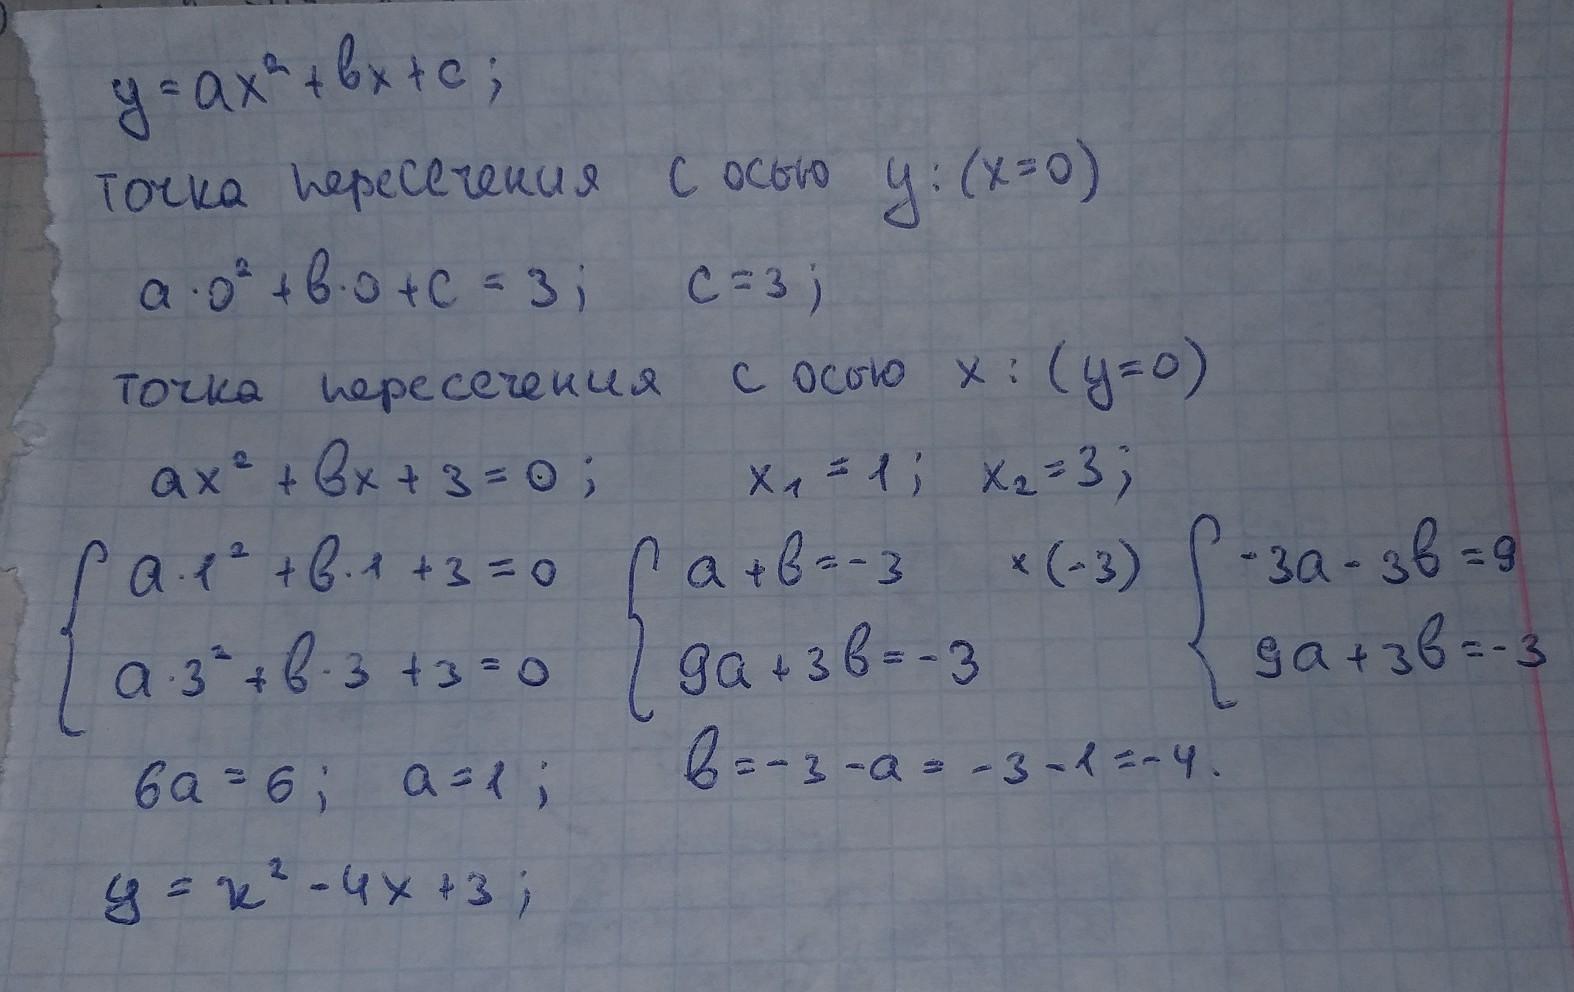 y = ax² + bx + c;
точка пересечения с осью y: (x=0)
a·0² + b·0 + c = 3; c = 3;
точка пересечения с осью x: (y=0)
ax² + bx + 3 = 0; x₁ = 1; x₂ = 3;
{ a·1² + b·1 + 3 = 0 { a + b = -3 ×(-3) { -3a - 3b = 9
a·3² + b·3 + 3 = 0 9a + 3b = -3 9a + 3b = -3
6a = 6; a = 1; b = -3 - a = -3 - 1 = -4.
y = x² - 4x + 3;